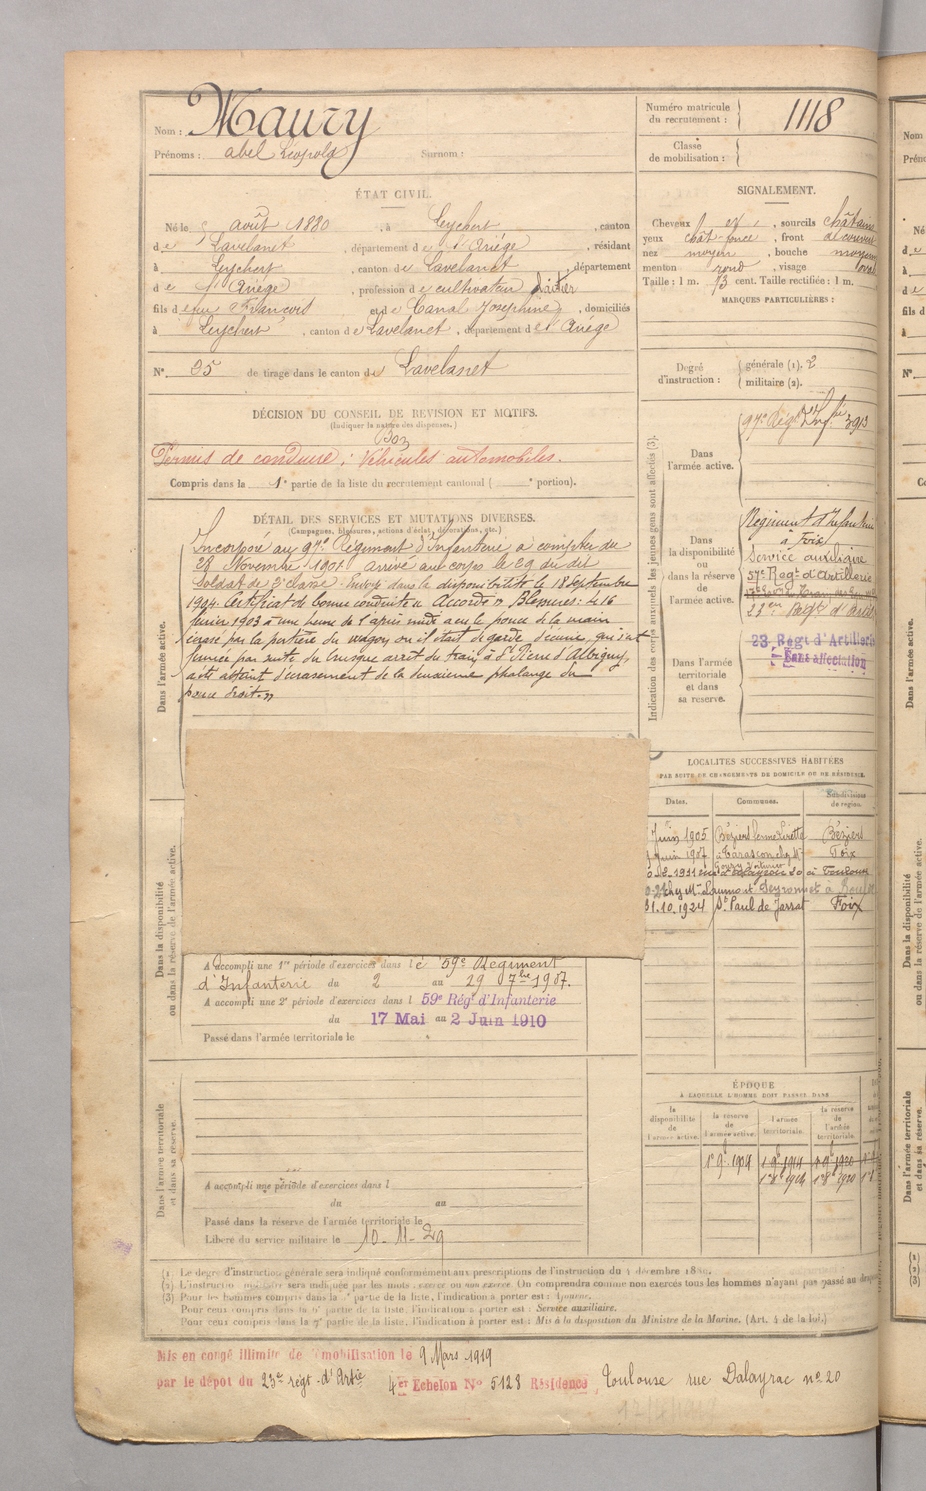 Nom : Maury
Prénoms : abel Léopold Surnom :
Numéro matricule du recrutement : 1118
Classe de mobilisation :
ÉTAT CIVIL.
Né le août 1880, à Leychert, canton
de Lavelanet, département de l'Ariége, résidant
à Leychert, canton de Lavelanet, département
de l'Ariége, profession de cultivateur Laitier
fils de feu François et de Canal Joséphine, domiciliés
à Leychert, canton de Lavelanet, département de l'Ariége
N° 25 de tirage dans le canton de Lavelanet
SIGNALEMENT.
Cheveux , sourcils châtains
yeux chât-foncé, front découvert
nez moyen, bouche moyenne
menton rond, visage oval
Taille : 1 m. 73 cent. Taille rectifiée : 1 m.
MARQUES PARTICULIÈRES :
Degré d'instruction : générale (1). 2
militaire (2).
DÉCISION DU CONSEIL DE REVISION ET MOTIFS.
(Indiquer la nature des dispenses.)
Bon
Permis de conduire : Véhicules automobiles.
Compris dans la 1e partie de la liste du recrutement cantonal ( e portion).
DÉTAIL DES SERVICES ET MUTATIONS DIVERSES.
(Campagnes, blessures, actions d'éclat, décorations, etc.)
Dans l'armée active.
Incorporé au 97e Régiment d'Infanterie à compter du
28 Novembre 1901 arrivé au corps le 29 du dit
soldat de 2e classe. Envoyé dans la disponibilité le 18 septembre
1904. Certificat de bonne conduite "Accordé". Blessures : Le 16
février 1903 à une heure de l'après midi a eu le pouce de la main
écrasé par la portière du wagon où il était de garde d'écurie, qui s'est
fermée par suite du brusque arrêt du train à St Pierre d'Albigny,
a été atteint d'écrasement de la deuxième phalange du
pouce droit."
Indication des corps auxquels les jeunes gens sont affectés (3).
Dans l'armée active.
97e Régt d'Infie 3913
Dans la disponibilité ou dans la réserve de l'armée active.
Régiment d'Infanterie
à Foix
Service auxiliaire
57e Régt d'Artillerie
23eme Régt d'Artie
Dans l'armée territoriale et dans sa réserve.
23 Régt d'Artillerie
Sans affectation
LOCALITÉS SUCCESSIVES HABITÉES
PAR SUITE DE CHANGEMENTS DE DOMICILE OU DE RÉSIDENCE.
Dates. Communes. Subdivisions de région.
Juin 1905 Béziers Béziers
Juin 1907 à Tarascon chez Mr Foix
Goury Voiturier
1911 rue Dalayrac 20 à Toulouse
31.10.1924 St Paul de Jarrat Foix
Dans la disponibilité ou dans la réserve de l'armée active.
A accompli une 1re période d'exercices dans le 59e Régiment
d'Infanterie du 2 au 29 7bre 1907.
A accompli une 2e période d'exercices dans l 59e Régt d'Infanterie
du 17 Mai au 2 Juin 1910
Passé dans l'armée territoriale le
ÉPOQUE
À LAQUELLE L'HOMME DOIT PASSER DANS
la disponibilité de l'armée active. la réserve de l'armée active. l'armée territoriale. la réserve de l'armée territoriale.
1er 9b 1904 1er 9b 1914 1er 9b 1920
Dans l'armée territoriale et dans sa réserve.
A accompli une période d'exercices dans l
du au
Passé dans la réserve de l'armée territoriale le
Libéré du service militaire le 10-11-29
(1) Le degré d'instruction générale sera indiqué conformément aux prescriptions de l'instruction du 4 décembre
(2) L'instruction militaire sera indiquée par les mots : exercé ou non exercé. (On comprendra comme non exercés tous les hommes n'ayant pas passé au
(3) Pour les hommes compris dans la partie de la liste, l'indication à porter est : Ajourné.
Pour ceux compris dans la partie de la liste, l'indication à porter est : Service auxiliaire.
Pour ceux compris dans la 7e partie de la liste, l'indication à porter est : Mis à la disposition du Ministre de la Marine. (Art. 4 de la loi.)
Mis en congé illimité de démobilisation le 9 Mars 1919
par le dépôt du 23e régt d'Artie 4er Echelon N° 5128 Résidence, Toulouse rue Dalayrac no 20